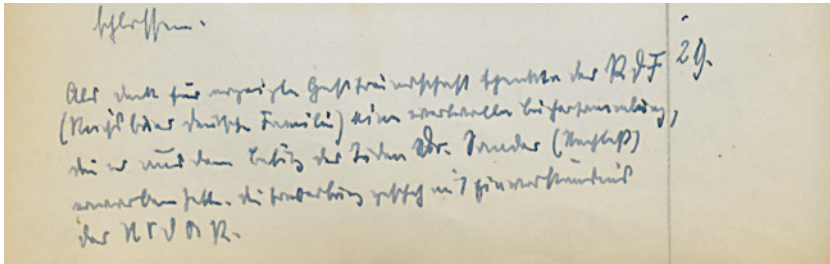 schlossen.
Als Dank für erzeigte Gastfreundschaft schenkte der R.D.F. 29.
(Reichsbund Deutsche Familie) eine wertvolle Büchersammlung,
die er aus dem Besitz des Juden Dr. Sander (Nachlaß)
erworben hatte. Die Erwerbung geschah mit Einverständnis
der NSDAP.